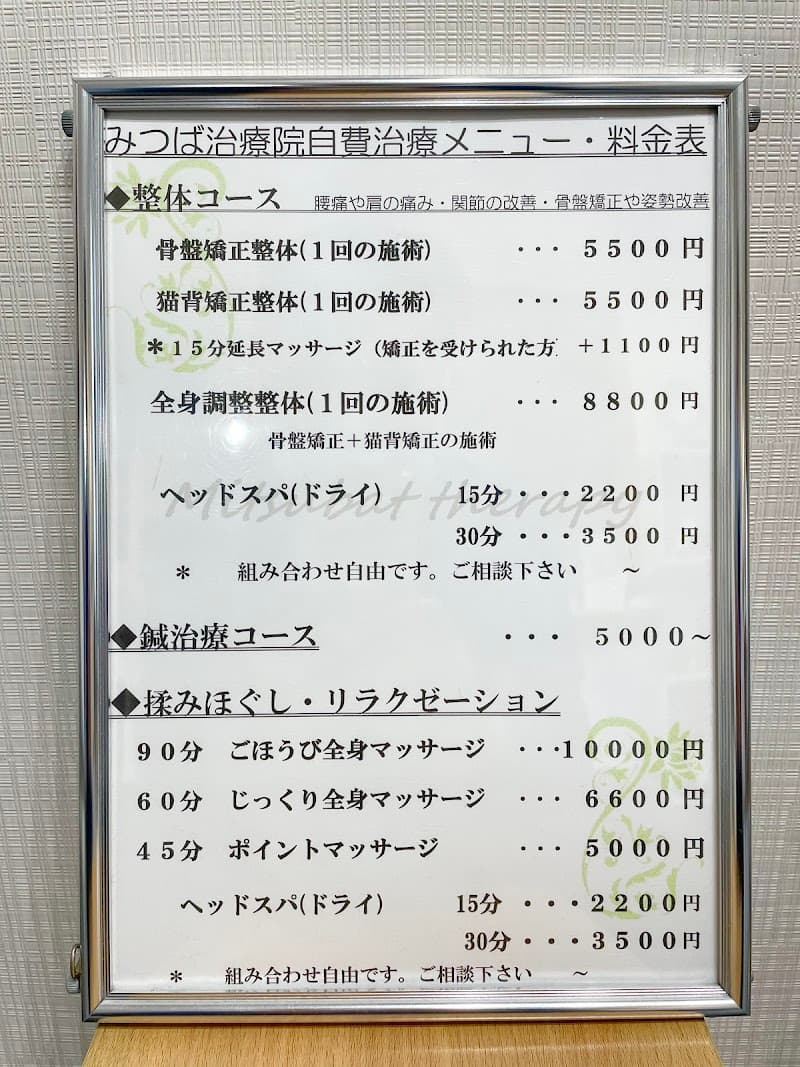 みつば治療院自費治療メニュー・料金表
◆整体コース 腰痛や肩の痛み・関節の改善・骨盤矯正や姿勢改善
骨盤矯正整体(１回の施術) ・・・ ５５００ 円
猫背矯正整体(１回の施術) ・・・ ５５００ 円
＊１５分延長マッサージ（矯正を受けられた方 ＋１１００ 円
全身調整整体(１回の施術) ・・・ ８８００ 円
骨盤矯正＋猫背矯正の施術
ヘッドスパ(ドライ) 15分 ・・・２２００ 円
30分 ・・・３５００ 円
＊ 組み合わせ自由です。ご相談下さい ～
◆鍼治療コース ・・・ ５０００～
◆揉みほぐし・リラクゼーション
９０分 ごほうび全身マッサージ ・・・１００００ 円
６０分 じっくり全身マッサージ ・・・ ６６００ 円
４５分 ポイントマッサージ ・・・ ５０００ 円
ヘッドスパ(ドライ) 15分 ・・・２２００円
30分 ・・・３５００円
＊ 組み合わせ自由です。ご相談下さい ～